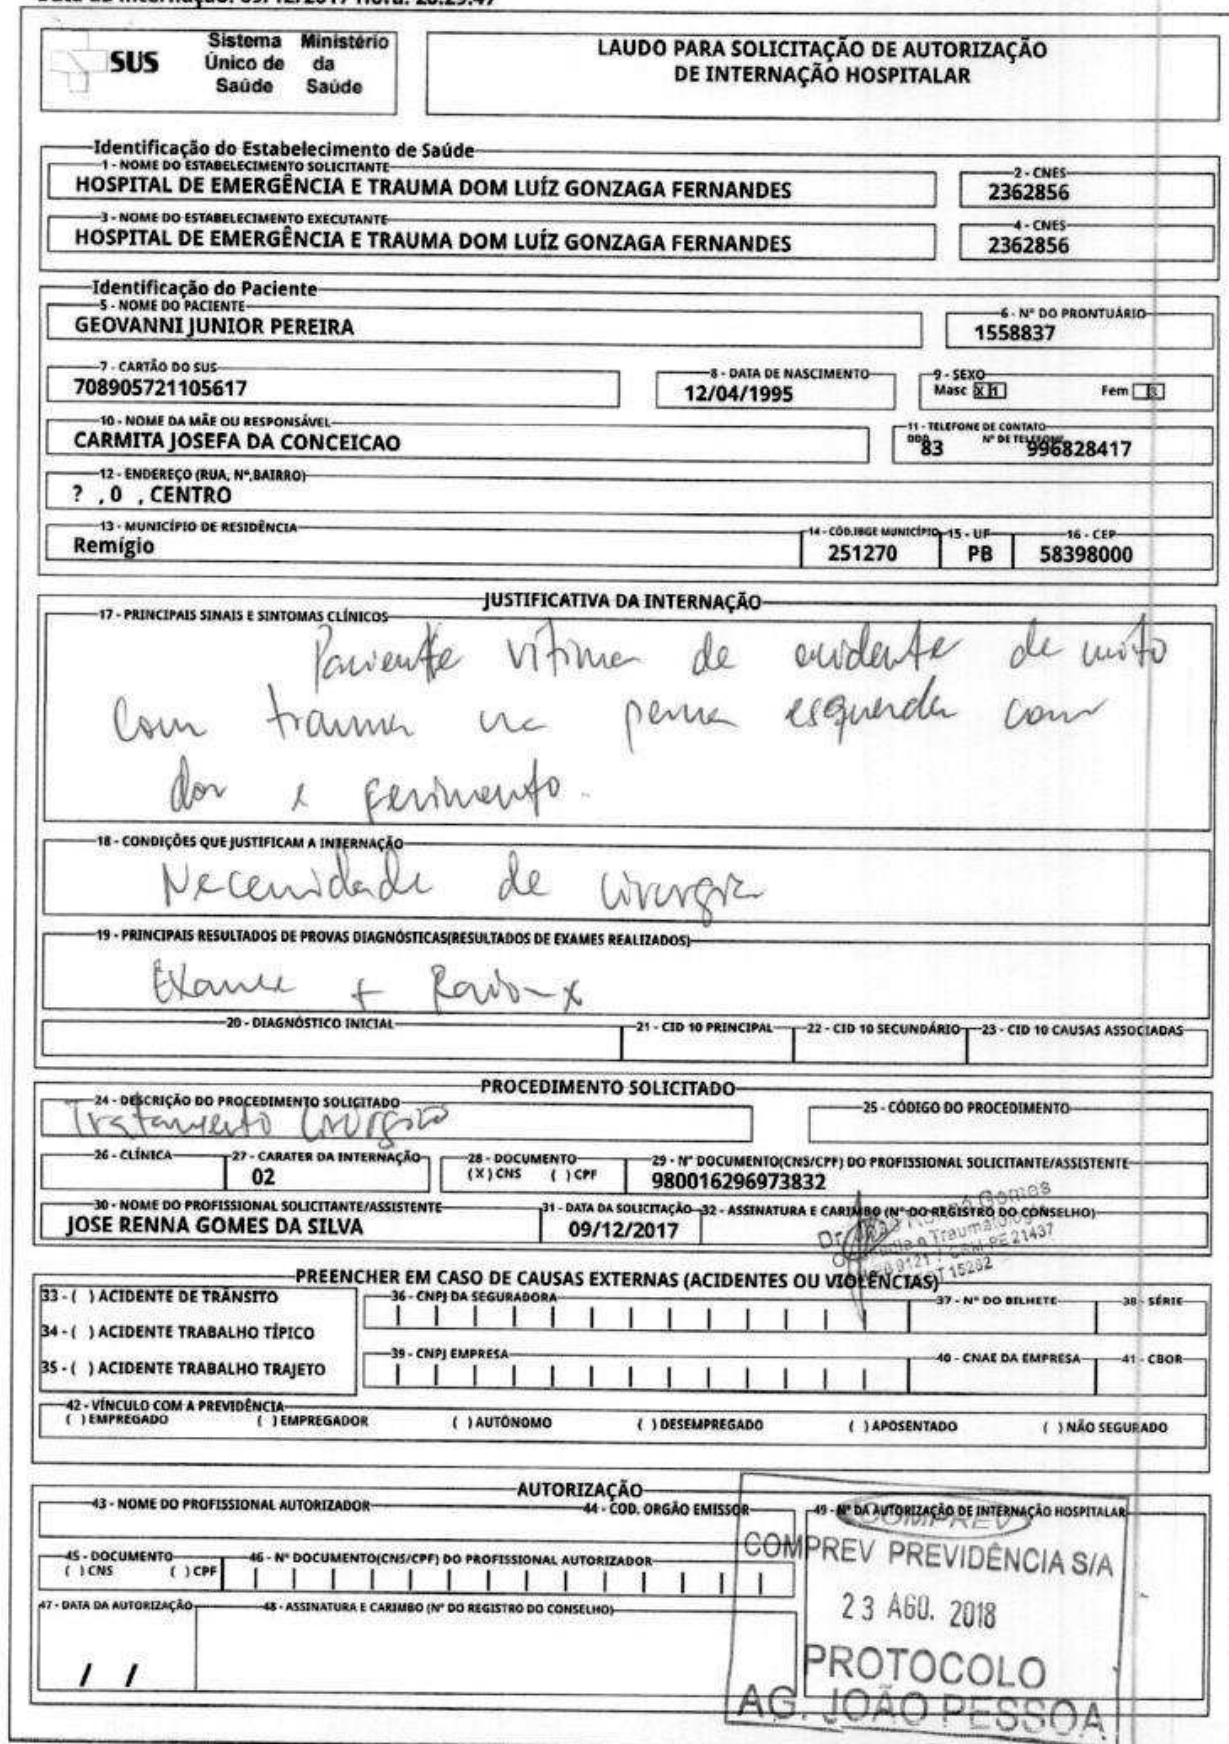 Data da Internação: 09/12/2017 Hora: 20:29:47
SUS
Sistema Único de Saúde
Ministério da Saúde
LAUDO PARA SOLICITAÇÃO DE AUTORIZAÇÃO
DE INTERNAÇÃO HOSPITALAR
Identificação do Estabelecimento de Saúde
1 - NOME DO ESTABELECIMENTO SOLICITANTE
HOSPITAL DE EMERGÊNCIA E TRAUMA DOM LUÍZ GONZAGA FERNANDES
2 - CNES
2362856
3 - NOME DO ESTABELECIMENTO EXECUTANTE
HOSPITAL DE EMERGÊNCIA E TRAUMA DOM LUÍZ GONZAGA FERNANDES
4 - CNES
2362856
Identificação do Paciente
5 - NOME DO PACIENTE
GEOVANNI JUNIOR PEREIRA
6 - Nº DO PRONTUÁRIO
1558837
7 - CARTÃO DO SUS
708905721105617
8 - DATA DE NASCIMENTO
12/04/1995
9 - SEXO
Masc X 1 Fem 3
10 - NOME DA MÃE OU RESPONSÁVEL
CARMITA JOSEFA DA CONCEICAO
11 - TELEFONE DE CONTATO
DDD Nº DE TELEFONE
83 996828417
12 - ENDEREÇO (RUA, Nº,BAIRRO)
? , 0 , CENTRO
13 - MUNICÍPIO DE RESIDÊNCIA
Remígio
14 - CÓD.IBGE MUNICÍPIO
251270
15 - UF
PB
16 - CEP
58398000
JUSTIFICATIVA DA INTERNAÇÃO
17 - PRINCIPAIS SINAIS E SINTOMAS CLÍNICOS
Paciente vítima de acidente de moto
com trauma na perna esquerda com
dor e ferimento.
18 - CONDIÇÕES QUE JUSTIFICAM A INTERNAÇÃO
Necessidade de cirurgia
19 - PRINCIPAIS RESULTADOS DE PROVAS DIAGNÓSTICAS(RESULTADOS DE EXAMES REALIZADOS)
Exame + Raio-x
20 - DIAGNÓSTICO INICIAL
21 - CID 10 PRINCIPAL
22 - CID 10 SECUNDÁRIO
23 - CID 10 CAUSAS ASSOCIADAS
PROCEDIMENTO SOLICITADO
24 - DESCRIÇÃO DO PROCEDIMENTO SOLICITADO
Tratamento Cirúrgico
25 - CÓDIGO DO PROCEDIMENTO
26 - CLÍNICA
27 - CARATER DA INTERNAÇÃO
02
28 - DOCUMENTO
(X) CNS ( ) CPF
29 - Nº DOCUMENTO(CNS/CPF) DO PROFISSIONAL SOLICITANTE/ASSISTENTE
980016296973832
30 - NOME DO PROFISSIONAL SOLICITANTE/ASSISTENTE
JOSE RENNA GOMES DA SILVA
31 - DATA DA SOLICITAÇÃO
09/12/2017
32 - ASSINATURA E CARIMBO (Nº DO REGISTRO DO CONSELHO)
Gomes
21437
15282
PREENCHER EM CASO DE CAUSAS EXTERNAS (ACIDENTES OU VIOLÊNCIAS)
33 - ( ) ACIDENTE DE TRÂNSITO
34 - ( ) ACIDENTE TRABALHO TÍPICO
35 - ( ) ACIDENTE TRABALHO TRAJETO
36 - CNPJ DA SEGURADORA
37 - Nº DO BILHETE
38 - SÉRIE
39 - CNPJ EMPRESA
40 - CNAE DA EMPRESA
41 - CBOR
42 - VÍNCULO COM A PREVIDÊNCIA
( ) EMPREGADO ( ) EMPREGADOR ( ) AUTÔNOMO ( ) DESEMPREGADO ( ) APOSENTADO ( ) NÃO SEGURADO
AUTORIZAÇÃO
43 - NOME DO PROFISSIONAL AUTORIZADOR
44 - COD. ORGÃO EMISSOR
49 - Nº DA AUTORIZAÇÃO DE INTERNAÇÃO HOSPITALAR
45 - DOCUMENTO
( ) CNS ( ) CPF
46 - Nº DOCUMENTO(CNS/CPF) DO PROFISSIONAL AUTORIZADOR
47 - DATA DA AUTORIZAÇÃO
/ /
48 - ASSINATURA E CARIMBO (Nº DO REGISTRO DO CONSELHO)
COMPREV
COMPREV PREVIDÊNCIA S/A
23 AGO. 2018
PROTOCOLO
AG. JOÃO PESSOA